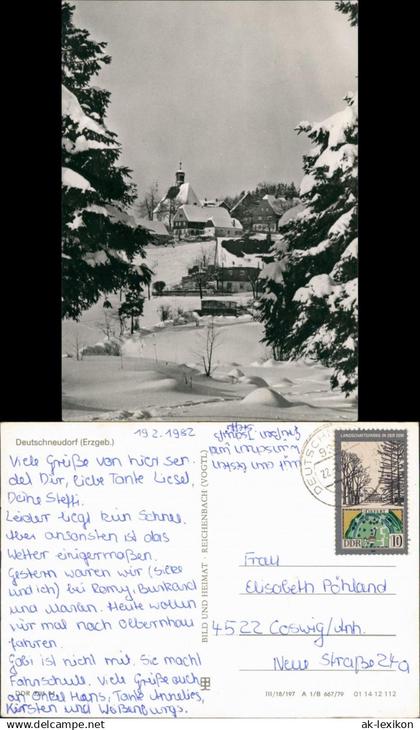 Deutschneudorf (Erzgeb.)
19.2.1982
Viele Grüße von hier sen-
det Dir, liebe Tante Liesel,
Deine Steffi.
Leider liegt kein Schnee.
Aber ansonsten ist das
Wetter einigermaßen.
Gestern waren wir (Silke
und ich) bei Romy, Burkhard
und Marian. Heute wollen
wir mal nach Olbernhau
fahren.
Gabi ist nicht mit. Sie macht
Fahrschule. Viele Grüße auch
an Onkel Hans, Tante Annelies,
Kirsten und Weißenburgs.
mit den besten
Wünschen und
Grüßen
Steffi
BILD UND HEIMAT · REICHENBACH (VOGTL)
LANDSCHAFTSPARKS IN DER DDR
DDR 10
Frau
Elisabeth Pöhland
4522 Coswig/Anh.
Neue Straße 24a
III/18/197 A 1/B 667/79 01 14 12 112
© a-lexikon
ak-lexikon.com